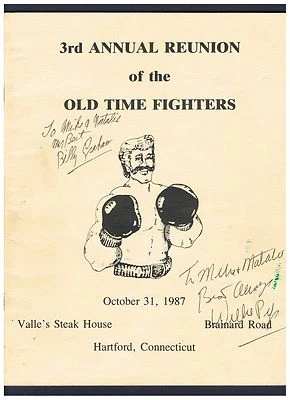 3rd ANNUAL REUNION
of the
OLD TIME FIGHTERS
To Mike & Natalie
My Best
Billy Graham
October 31, 1987
To Mike & Natalie
Best Always
Willie Pep
Valle's Steak House Brainard Road
Hartford, Connecticut